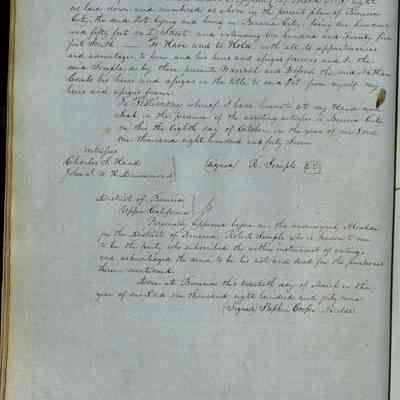 as laid down and numbered as above in the present plan of Benicia
City, the said Lot lying and being in Benicia City, being one hundred
and fifty feet on Street and extending one hundred and twenty five
feet South — To Have and to Hold with all its appurtenances
and advantages to him and his heirs and assigns forever and I the
said Semple do by these presents Warrant and Defend the said Nathan
Coombs his heirs and assigns in the title to said Lot from myself my
heirs and assigns forever
In Testimony whereof I have hereunto set my Hand and
Seal in the presence of the assisting witnesses in Benicia City
on this the Eighth day of October in the year of our Lord
one thousand eight hundred and forty Seven
Witness
Charles S. Head
John S. W. H. Drummond
(Signed) R. Semple
District of Benicia
Upper California
Personally appeared before me the undersigned Alcalde
in the District of Benicia, Robert Semple who is known to me
to be the party who subscribed the within instrument of writing
and acknowledged the same to be his act and deed for the purposes
therein mentioned.
Done at Benicia this twentieth day of March in the
year of our Lord one thousand eight hundred and forty nine
(Signed) Stephen Cooper Alcalde